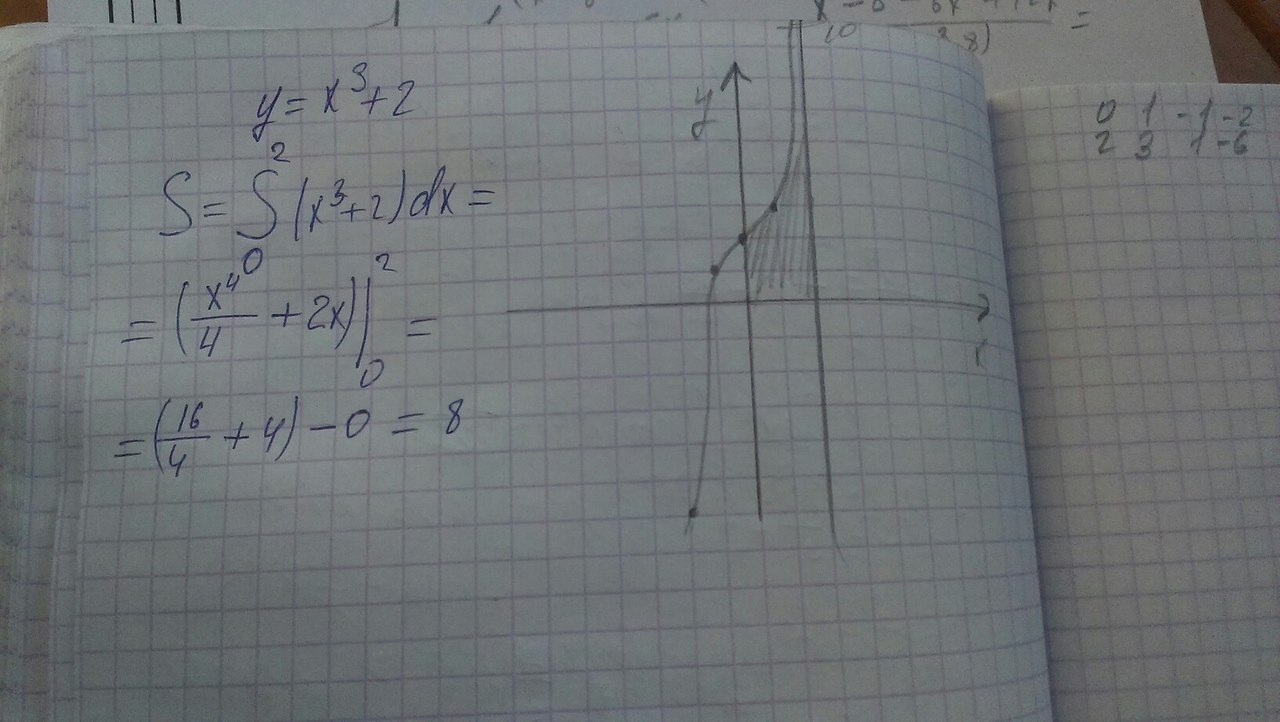 y = x³ + 2
S = ∫₀² (x³+2) dx =
= (x⁴/4 + 2x)|₀² =
= (16/4 + 4) - 0 = 8
y
0 1 -1 -2
2 3 1 -6